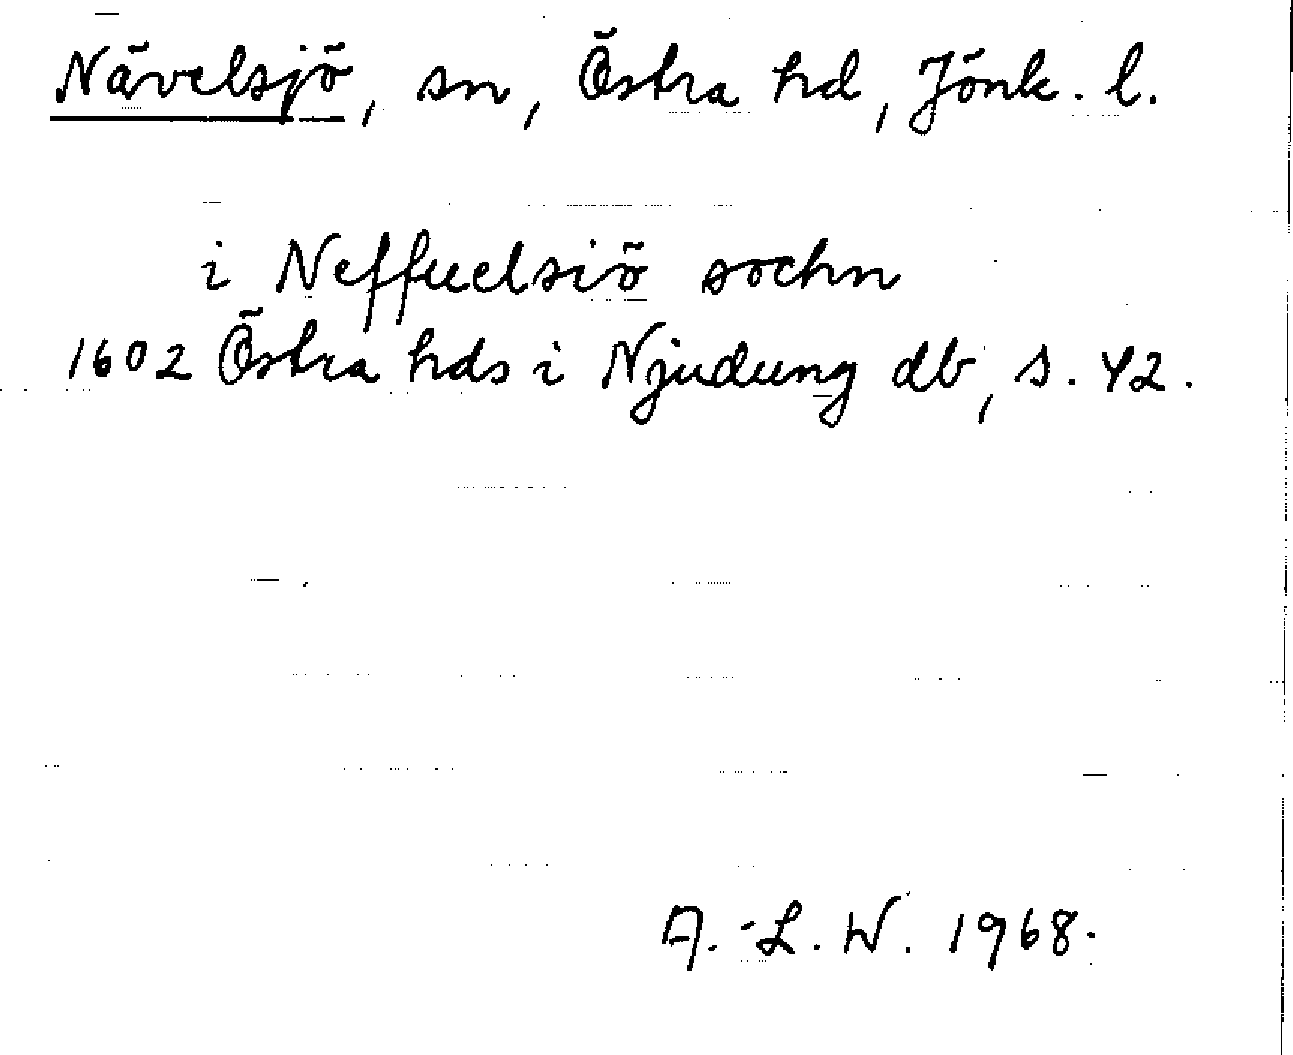 Nävelsjö, sn, Östra hd, Jönk. l.
i Neffuelsiö sochn
1602 Östra hds i Njudung db, s. 42.
A.-L. W. 1968.